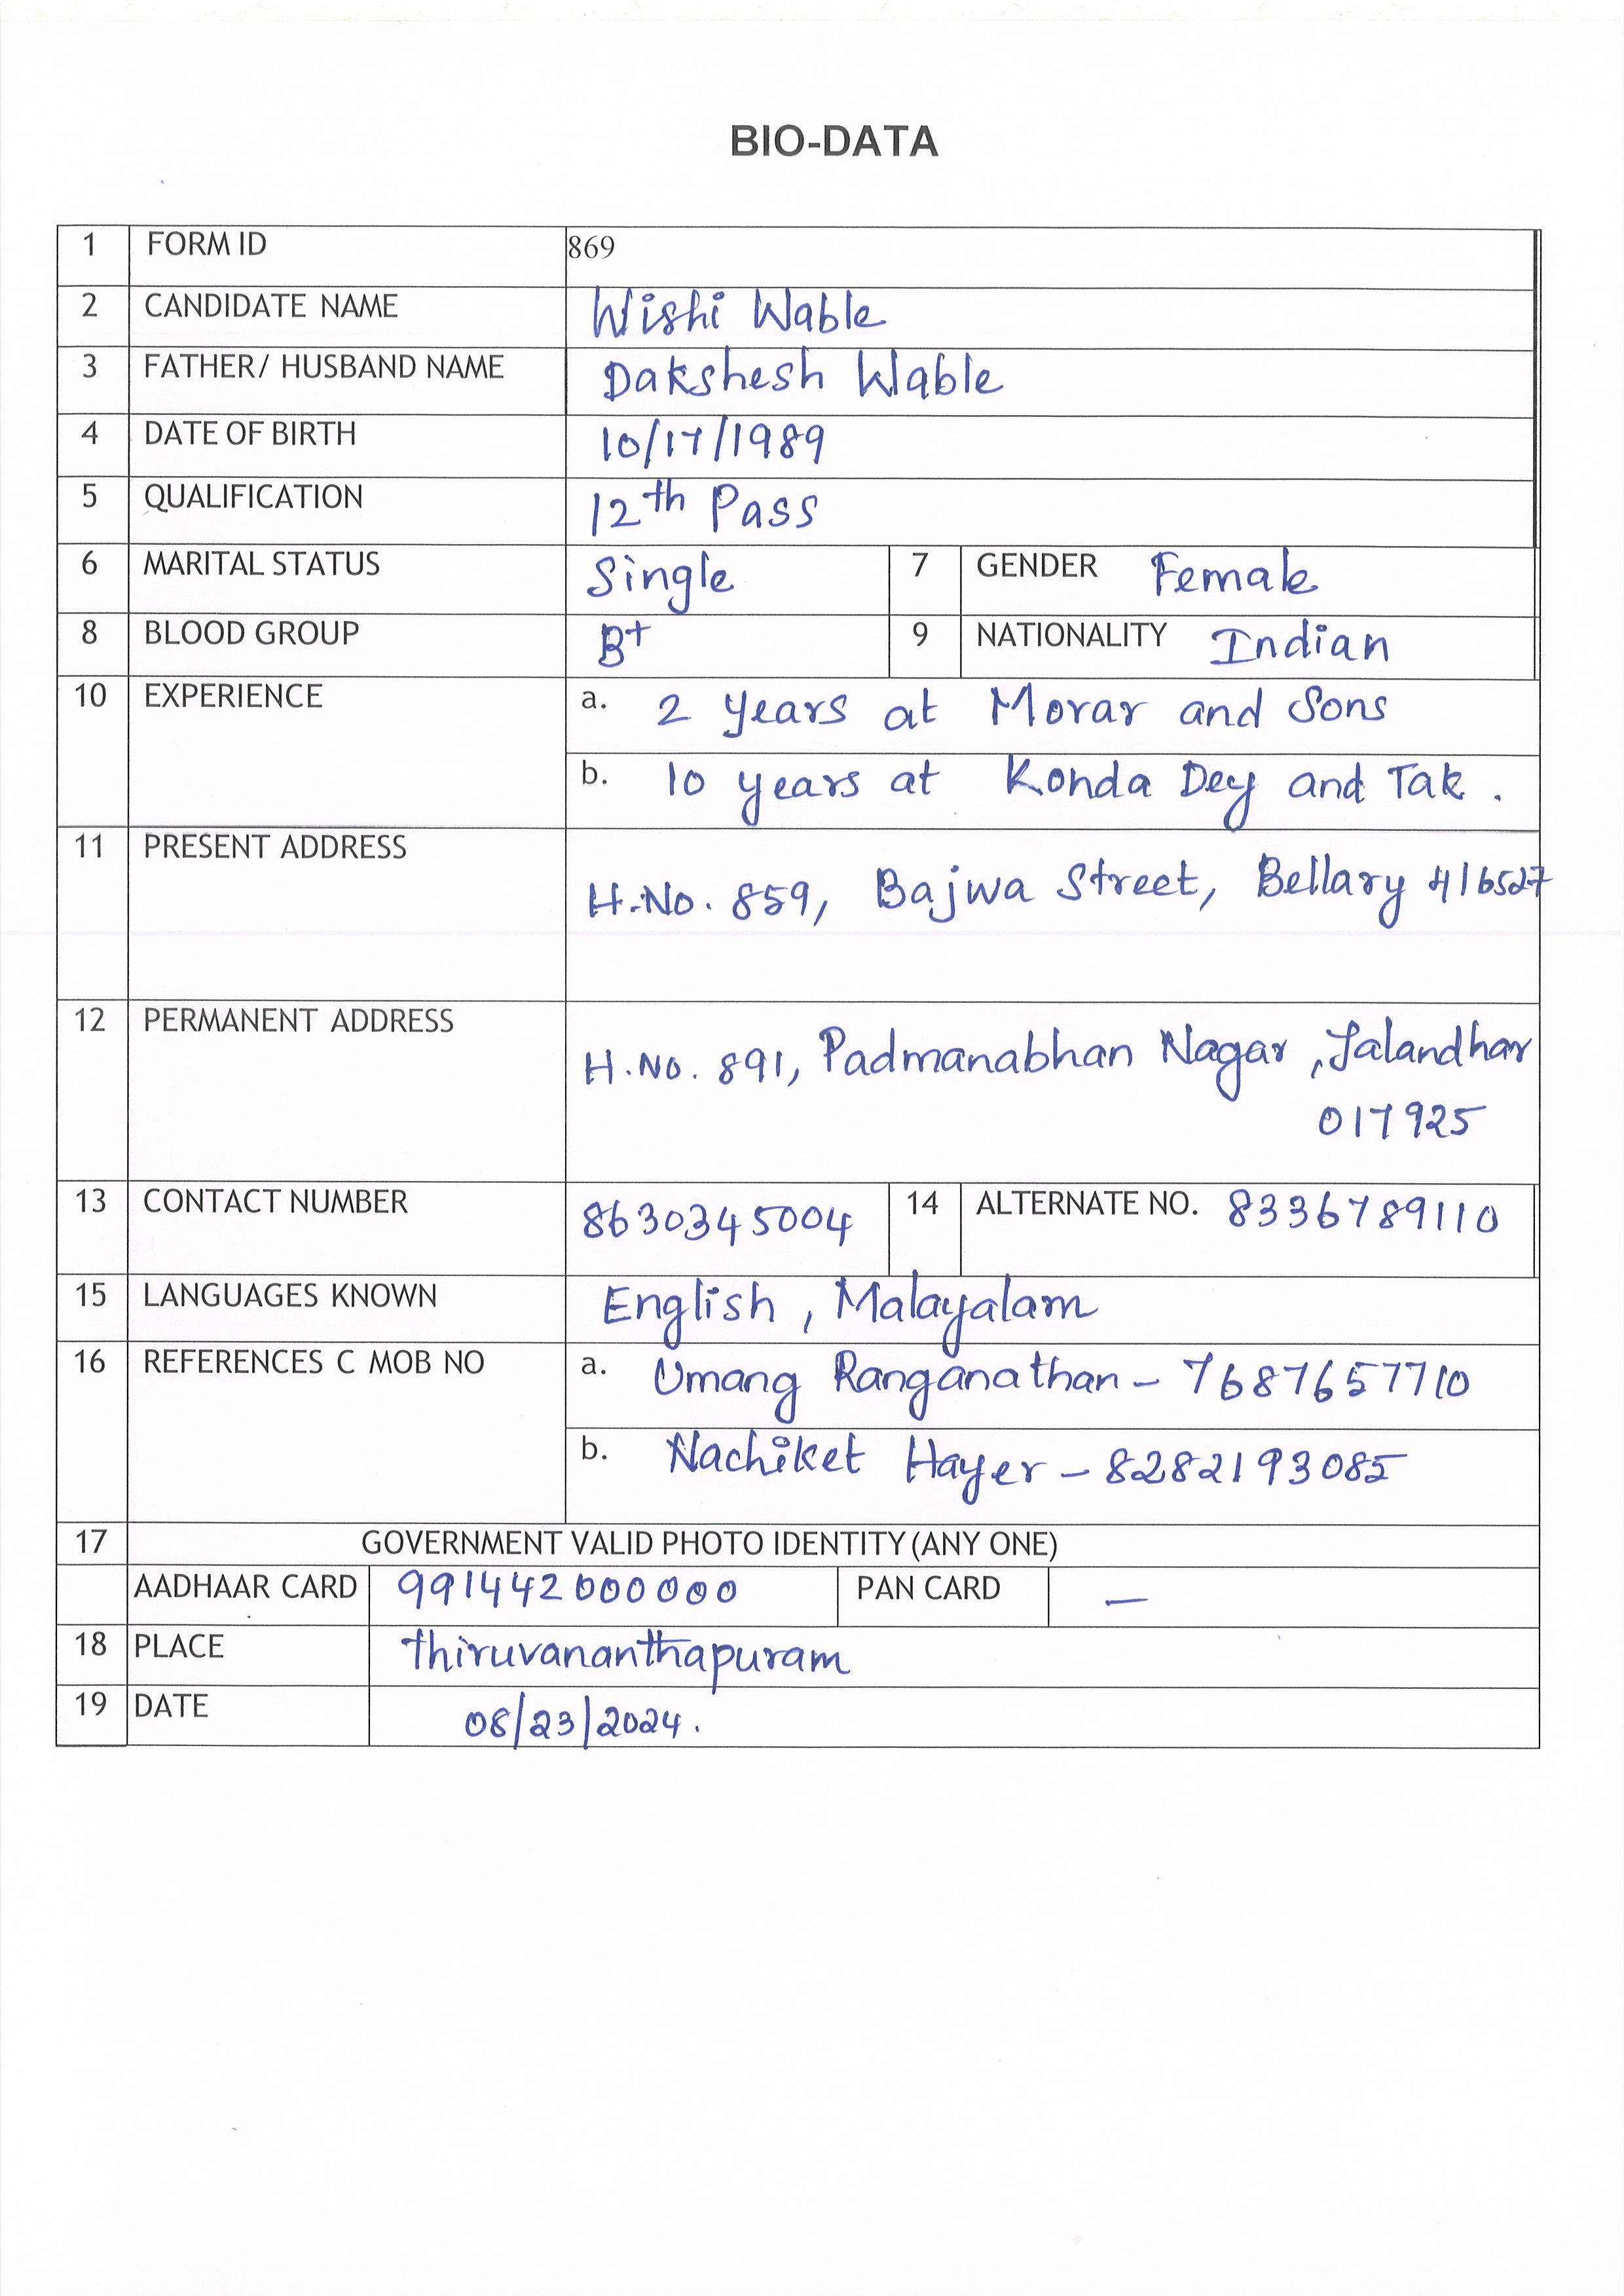 BIO-DATA
1 FORM ID 869
2 CANDIDATE NAME Wishi Wable
3 FATHER/ HUSBAND NAME Dakshesh Wable
4 DATE OF BIRTH 10/17/1989
5 QUALIFICATION 12th Pass
6 MARITAL STATUS Single 7 GENDER Female
8 BLOOD GROUP B+ 9 NATIONALITY Indian
10 EXPERIENCE a. 2 years at Morar and Sons
b. 10 years at Konda Dey and Tak .
11 PRESENT ADDRESS
H.No. 859, Bajwa Street, Bellary 416527
12 PERMANENT ADDRESS
H.No. 891, Padmanabhan Nagar , Jalandhar
017925
13 CONTACT NUMBER 8630345004 14 ALTERNATE NO. 8336789110
15 LANGUAGES KNOWN English , Malayalam
16 REFERENCES C MOB NO a. Umang Ranganathan - 7687657710
b. Nachiket Hayer - 8282193085
17 GOVERNMENT VALID PHOTO IDENTITY (ANY ONE)
AADHAAR CARD 991442000000 PAN CARD —
18 PLACE Thiruvananthapuram
19 DATE 08/23/2024.